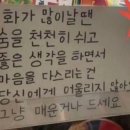 화가 많이날 때
숨을 천천히 쉬고
좋은 생각을 하면서
마음을 다스리는 건
당신에게 어울리지 않아요
그냥 매운거나 드세요